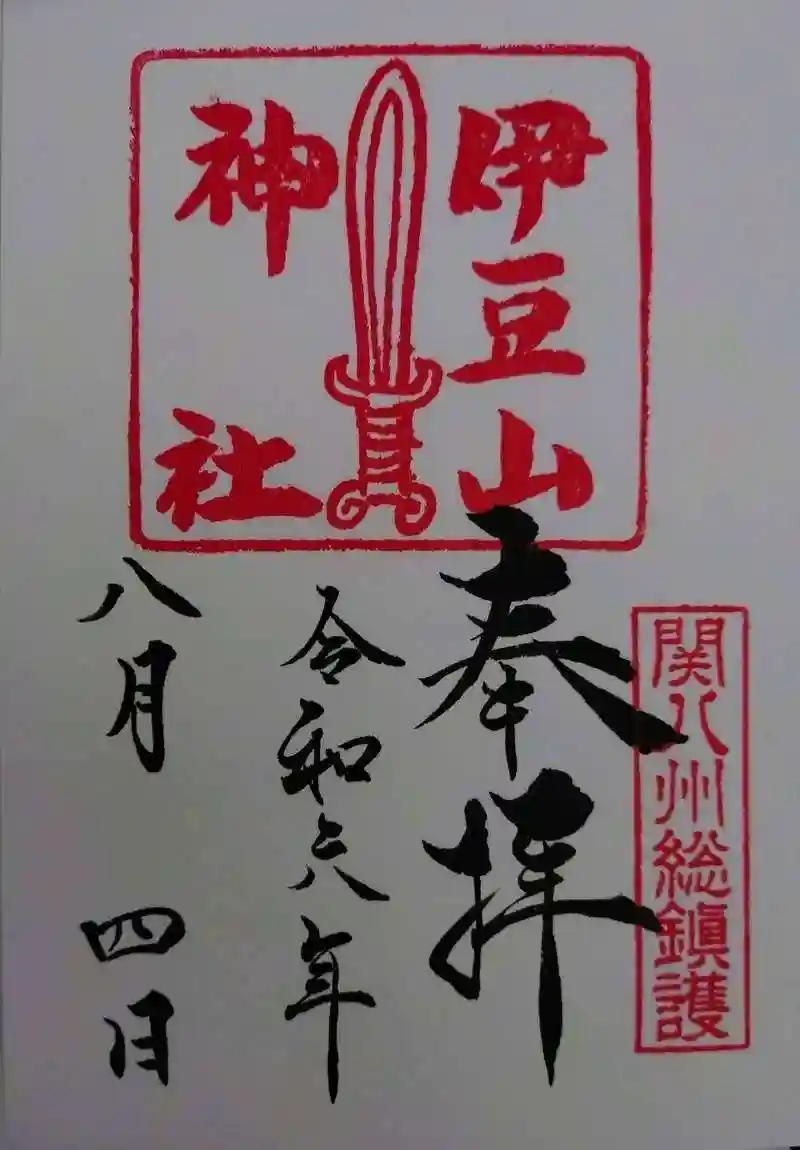 伊豆山
神社
関八州総鎮護
奉拝
令和六年
八月四日